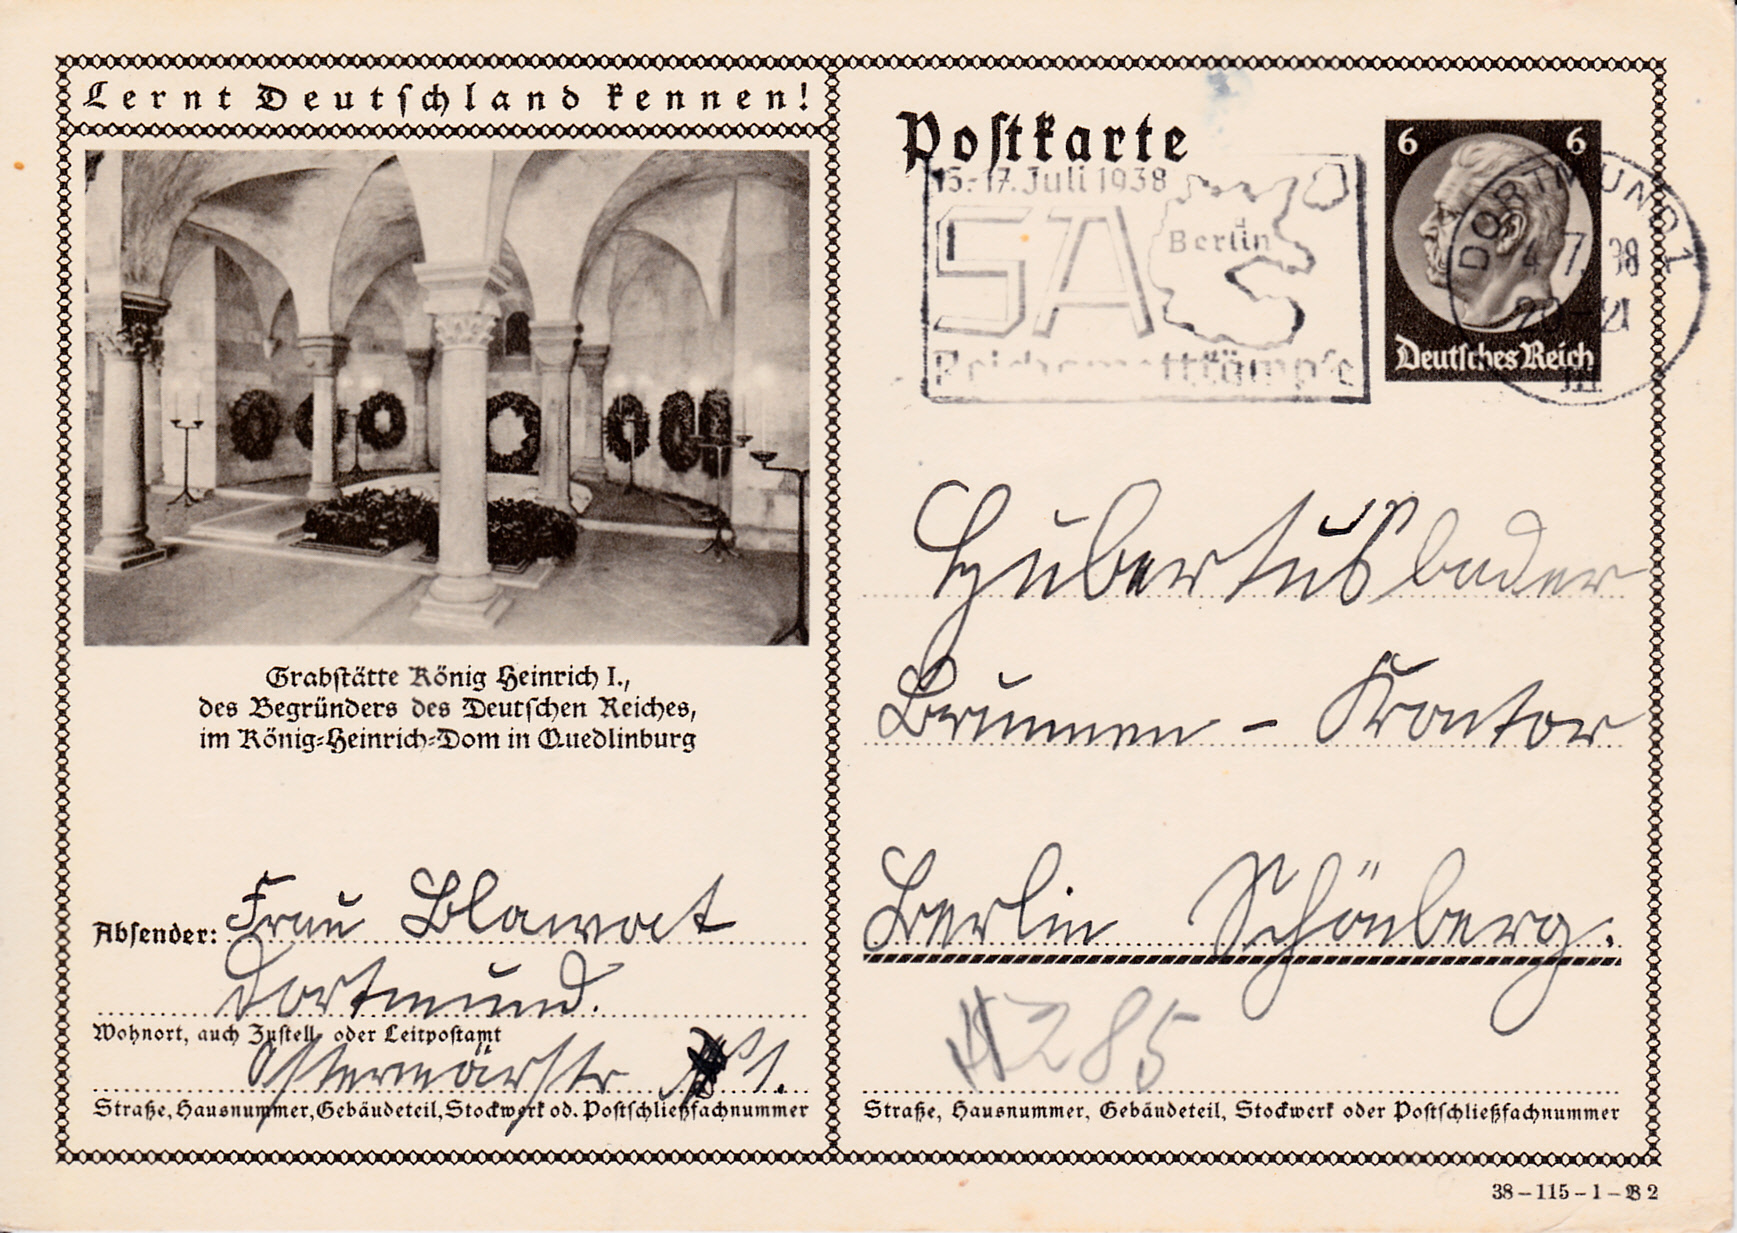 Lernt Deutschland kennen!
Grabstätte König Heinrich I.,
des Begründers des Deutschen Reiches,
im König-Heinrich-Dom in Quedlinburg
Absender: Frau Blawat
Dortmund.
Wohnort, auch Zustell- oder Leitpostamt
1.
Straße, Hausnummer, Gebäudeteil, Stockwerk od. Postschließfachnummer
Postkarte
15.-17. Juli 1938
SA
Berlin
Reichswettkämpfe
6 6
Deutsches Reich
DORTMUND 1
4.7.38
Hubertusbader
Brunnen - Kontor
Berlin Schöneberg.
285
Straße, Hausnummer, Gebäudeteil, Stockwerk oder Postschließfachnummer
38-115-1-B 2